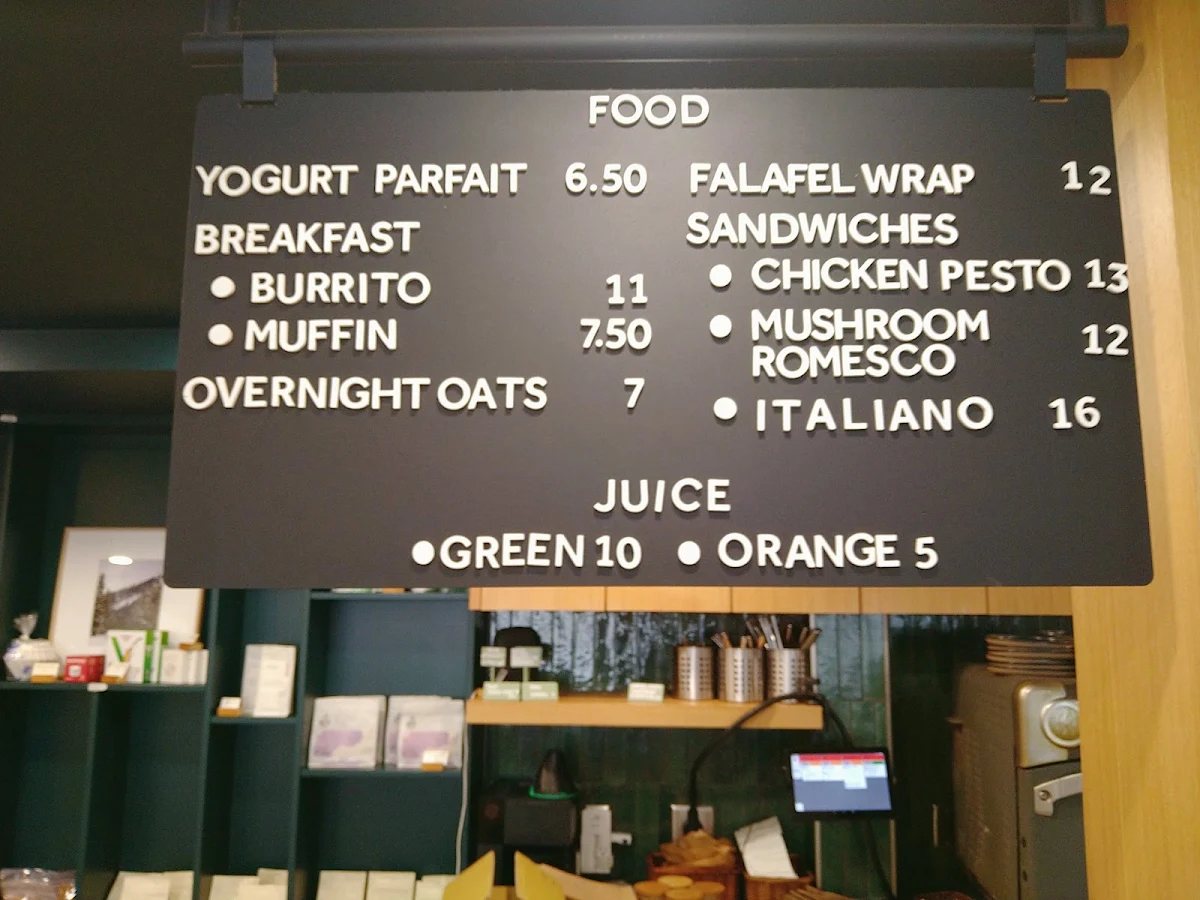 FOOD
YOGURT PARFAIT 6.50
BREAKFAST
● BURRITO 11
● MUFFIN 7.50
OVERNIGHT OATS 7
FALAFEL WRAP 12
SANDWICHES
● CHICKEN PESTO 13
● MUSHROOM
ROMESCO 12
● ITALIANO 16
JUICE
● GREEN 10 ● ORANGE 5